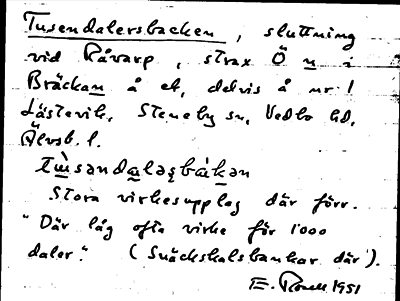 Tusendalersbacken, sluttning
vid Råvarp, strax Ö n i
Bräckan å et, delvis å nr 1
Lästevik, Steneby sn, Vedbo hd,
Älvsb. l.
Stora virkesupplag där förr.
"Där låg ofta virke för 1000
daler". (Snäckskalsbankar där).
1951